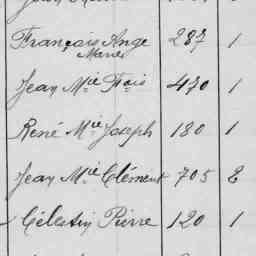 François Ange 287 1
Marie
Jean Mie Fois 470 1
René Mie Joseph 180 1
Jean Mie Clément 705 2
Célestin Pierre 120 1